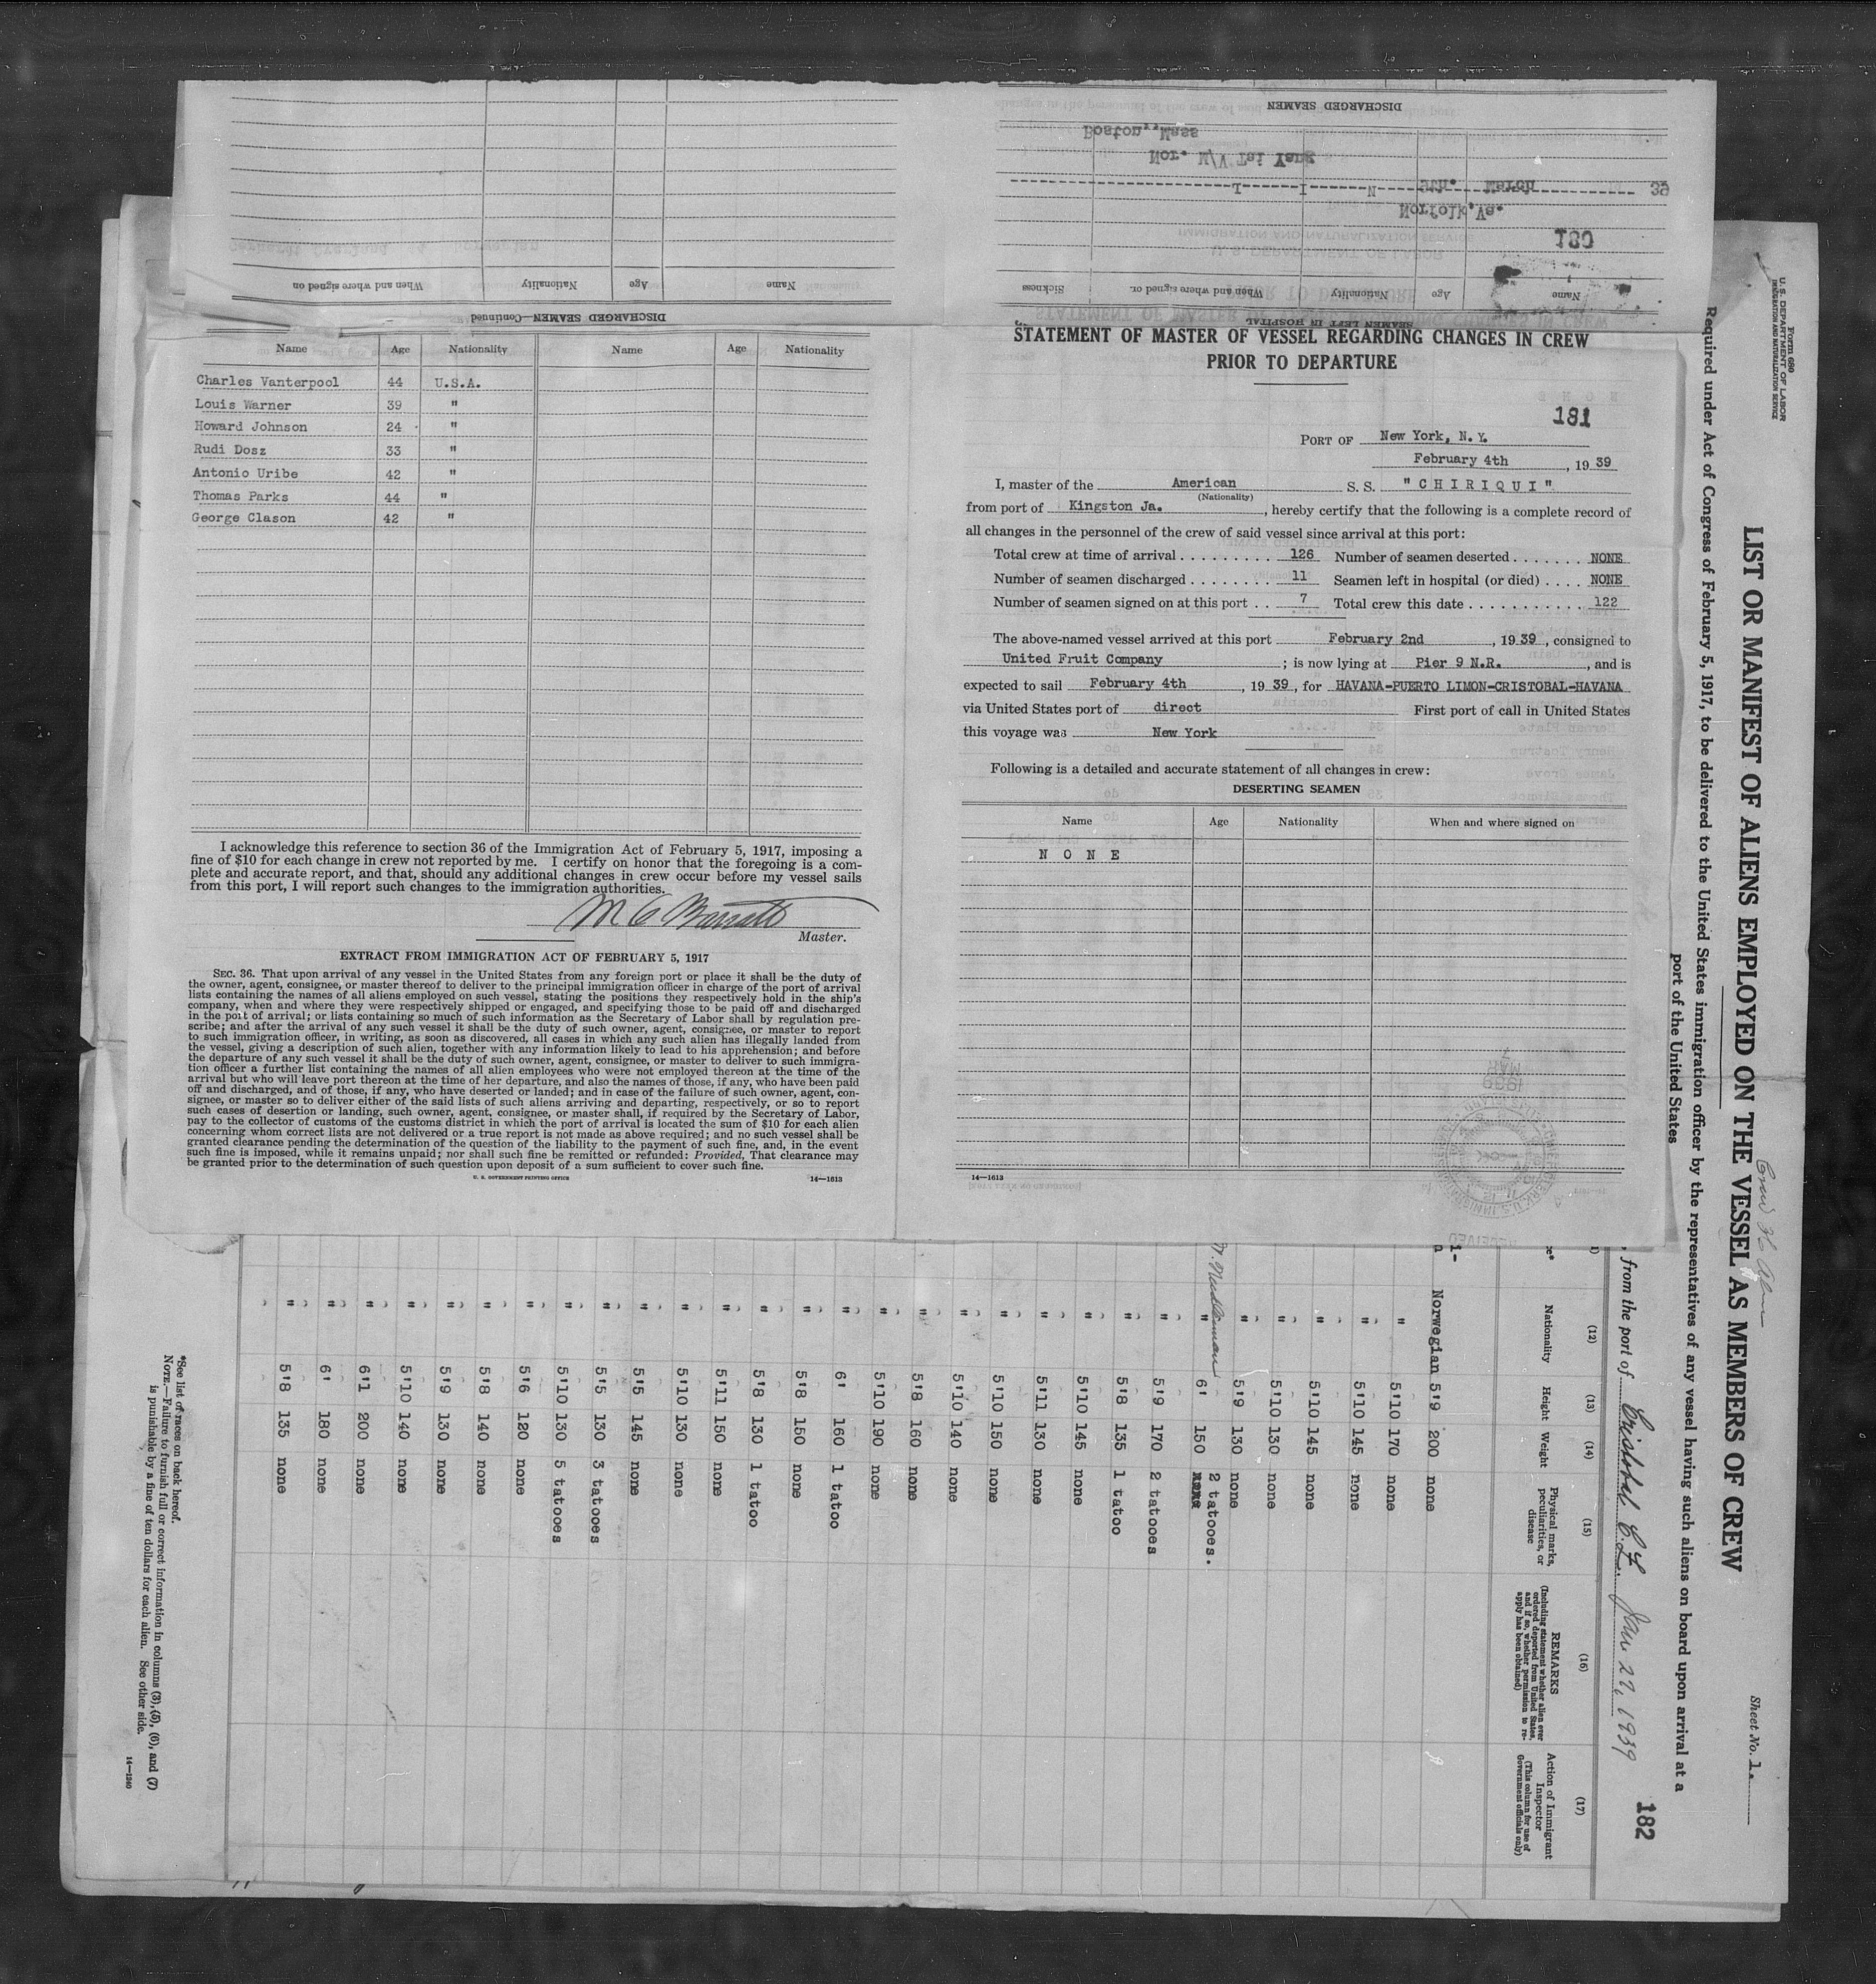 DISCHARGED SEAMEN
Boston, Mass
Nor. M/V Tai Yang
N I L
9th. March 39
Norfolk, Va.
180
When and where signed on Nationality Age Name
Sickness When and where signed on Nationality Age Name
DISCHARGED SEAMEN—Continued
SEAMEN LEFT IN HOSPITAL
Name Age Nationality Name Age Nationality
Charles Vanterpool 44 U.S.A.
Louis Warner 39 "
Howard Johnson 24 "
Rudi Dosz 33 "
Antonio Uribe 42 "
Thomas Parks 44 "
George Clason 42 "
I acknowledge this reference to section 36 of the Immigration Act of February 5, 1917, imposing a
fine of $10 for each change in crew not reported by me. I certify on honor that the foregoing is a com-
plete and accurate report, and that, should any additional changes in crew occur before my vessel sails
from this port, I will report such changes to the immigration authorities.
Master.
EXTRACT FROM IMMIGRATION ACT OF FEBRUARY 5, 1917
SEC. 36. That upon arrival of any vessel in the United States from any foreign port or place it shall be the duty of
the owner, agent, consignee, or master thereof to deliver to the principal immigration officer in charge of the port of arrival
lists containing the names of all aliens employed on such vessel, stating the positions they respectively hold in the ship's
company, when and where they were respectively shipped or engaged, and specifying those to be paid off and discharged
in the port of arrival; or lists containing so much of such information as the Secretary of Labor shall by regulation pre-
scribe; and after the arrival of any such vessel it shall be the duty of such owner, agent, consignee, or master to report
to such immigration officer, in writing, as soon as discovered, all cases in which any such alien has illegally landed from
the vessel, giving a description of such alien, together with any information likely to lead to his apprehension; and before
the departure of any such vessel it shall be the duty of such owner, agent, consignee, or master to deliver to such immigra-
tion officer a further list containing the names of all alien employees who were not employed thereon at the time of the
arrival but who will leave port thereon at the time of her departure, and also the names of those, if any, who have been paid
off and discharged, and of those, if any, who have deserted or landed; and in case of the failure of such owner, agent, con-
signee, or master so to deliver either of the said lists of such aliens arriving and departing, respectively, or so to report
such cases of desertion or landing, such owner, agent, consignee, or master shall, if required by the Secretary of Labor,
pay to the collector of customs of the customs district in which the port of arrival is located the sum of $10 for each alien
concerning whom correct lists are not delivered or a true report is not made as above required; and no such vessel shall be
granted clearance pending the determination of the question of the liability to the payment of such fine, and, in the event
such fine is imposed, while it remains unpaid; nor shall such fine be remitted or refunded: Provided, That clearance may
be granted prior to the determination of such question upon deposit of a sum sufficient to cover such fine.
U. S. GOVERNMENT PRINTING OFFICE 14—1613
STATEMENT OF MASTER OF VESSEL REGARDING CHANGES IN CREW
PRIOR TO DEPARTURE
181
PORT OF New York, N.Y.
February 4th, 1939
I, master of the American S. S. "CHIRIQUI"
(Nationality)
from port of Kingston Ja., hereby certify that the following is a complete record of
all changes in the personnel of the crew of said vessel since arrival at this port:
Total crew at time of arrival 126 Number of seamen deserted NONE
Number of seamen discharged 11 Seamen left in hospital (or died) NONE
Number of seamen signed on at this port 7 Total crew this date 122
The above-named vessel arrived at this port February 2nd, 1939, consigned to
United Fruit Company; is now lying at Pier 9 N.R., and is
expected to sail February 4th, 1939, for HAVANA-PUERTO LIMON-CRISTOBAL-HAVANA
via United States port of direct First port of call in United States
this voyage was New York
Following is a detailed and accurate statement of all changes in crew:
DESERTING SEAMEN
Name Age Nationality When and where signed on
N O N E
14—1613
Form 680
U. S. DEPARTMENT OF LABOR
IMMIGRATION AND NATURALIZATION SERVICE
Sheet No. 1.
LIST OR MANIFEST OF ALIENS EMPLOYED ON THE VESSEL AS MEMBERS OF CREW
Required under Act of Congress of February 5, 1917, to be delivered to the United States immigration officer by the representatives of any vessel having such aliens on board upon arrival at a
port of the United States
182
, from the port of Cristobal C.Z. Jan 22, 1939
(12) (13) (14) (15) (16) (17)
Nationality Height Weight Physical marks, peculiarities, or disease
REMARKS
(Including statement whether alien ever ordered deported from United States, and if so, whether permission to re-apply has been obtained)
Action of Immigrant Inspector
(This column for use of Government officials only)
Norwegian 5'9 200 none
" 5'10 170 none
" 5'10 145 none
" 5'10 145 none
" 5'10 130 none
" 5'9 130 none
" 6' 150 none 2 tatooes.
" 5'9 170 2 tatooes
" 5'8 135 1 tatoo
" 5'10 145 none
" 5'11 130 none
" 5'10 150 none
" 5'10 140 none
" 5'8 160 none
" 5'10 190 none
" 6' 160 1 tatoo
" 5'8 150 none
" 5'8 130 1 tatoo
" 5'11 150 none
" 5'10 130 none
" 5'5 145 none
" 5'5 130 3 tatooes
" 5'10 130 5 tatooes
" 5'6 120 none
" 5'8 140 none
" 5'9 130 none
" 5'10 140 none
" 6'1 200 none
" 6' 180 none
" 5'8 135 none
*See list of races on back hereof.
NOTE.—Failure to furnish full or correct information in columns (3), (5), (6), and (7)
is punishable by a fine of ten dollars for each alien. See other side.
14—1240